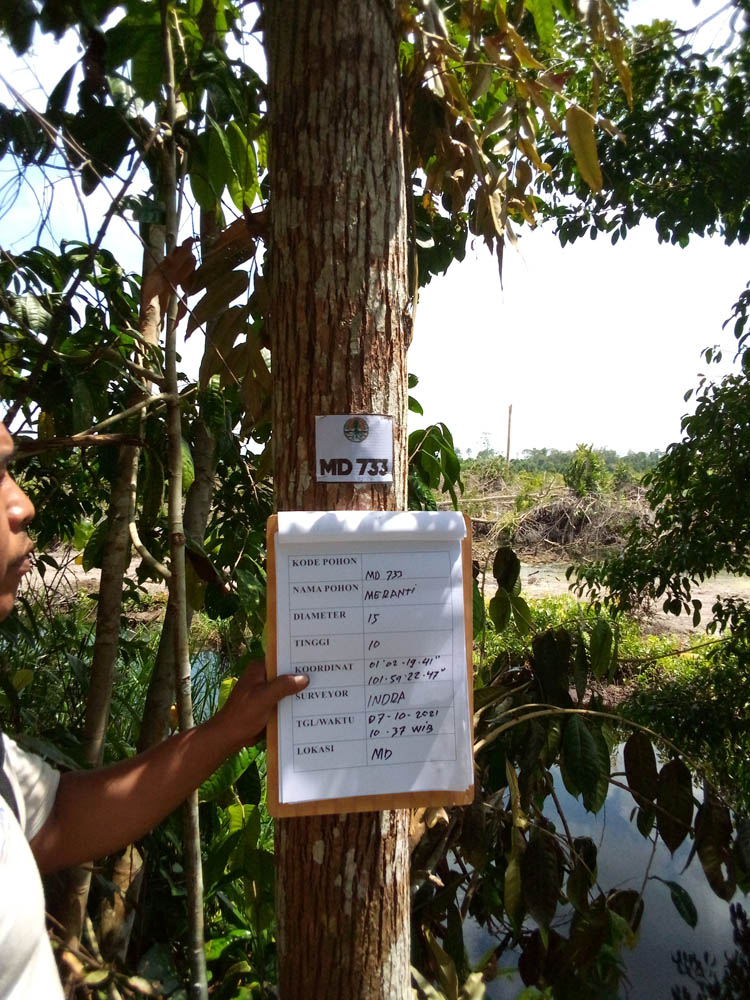 MD 733
KODE POHON MD 733
NAMA POHON MERANTI
DIAMETER 15
TINGGI 10
KOORDINAT 01°02'.19.41"
101.59'22.47"
SURVEYOR INDRA
TGL/WAKTU 07-10-2021
10.37 WIB
LOKASI MD